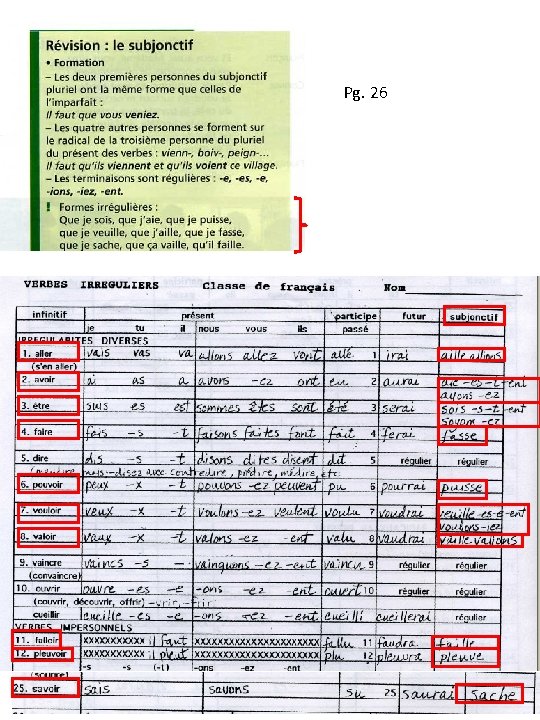 Révision : le subjonctif
• Formation
– Les deux premières personnes du subjonctif
pluriel ont la même forme que celles de
l'imparfait :
Il faut que vous veniez.
– Les quatre autres personnes se forment sur
le radical de la troisième personne du pluriel
du présent des verbes : vienn-, boiv-, peign-...
Il faut qu'ils viennent et qu'ils voient ce village.
– Les terminaisons sont régulières : -e, -es, -e,
-ions, -iez, -ent.
! Formes irrégulières :
Que je sois, que j'aie, que je puisse,
que je veuille, que j'aille, que je fasse,
que je sache, que ça vaille, qu'il faille.
Pg. 26
VERBES IRREGULIERS Classe de français Nom
infinitif présent participe futur subjonctif
je tu il nous vous ils passé
IRREGULARITES DIVERSES
1. aller vais vas va allons allez vont allé 1 irai aille allions
(s'en aller)
2. avoir ai as a avons -ez ont eu 2 aurai aie -es -t -ent
ayons -ez
3. être suis es est sommes êtes sont été 3 serai sois -s -t -ent
soyons -ez
4. faire fais -s -t faisons faites font fait 4 ferai fasse
5. dire dis -s -t disons dites disent dit 5 régulier régulier
mais: -disez avec contredire, prédire, médire, etc
6. pouvoir peux -x -t pouvons -ez peuvent pu 6 pourrai puisse
7. vouloir veux -x -t voulons -ez veulent voulu 7 voudrai veuille -es -e -ent
voulions -iez
8. valoir vaux -x -t valons -ez -ent valu 8 vaudrai vaille valions
9. vaincre vaincs -s – vainquons -ez -ent vaincu 9 régulier régulier
(convaincre)
10. ouvrir ouvre -es -e -ons -ez -ent ouvert 10 régulier régulier
(couvrir, découvrir, offrir)
cueillir cueille -es -e -ons -ez -ent cueilli cueillerai régulier
VERBES IMPERSONNELS
11. falloir XXXXXXXXXXX il faut XXXXXXXXXXXXXXXXXXXXXX fallu 11 faudra faille
12. pleuvoir XXXXXXXXXXX il pleut XXXXXXXXXXXXXXXXXXXXXX plu 12 pleuvra pleuve
-s -s (-t) -ons -ez -ent
25. savoir sais savons su 25 saurai sache